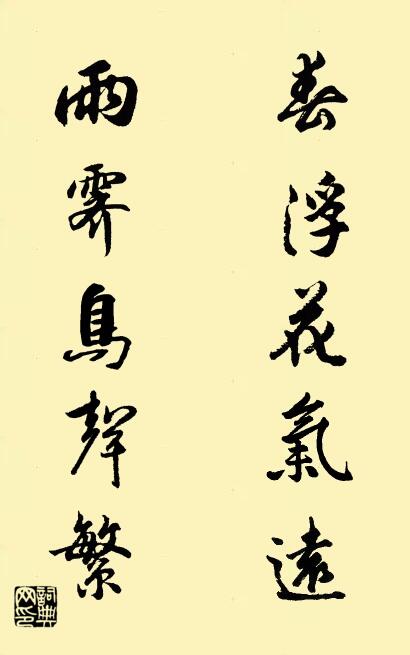 春浮花氣遠
雨霽鳥聲繁
詞典
网印